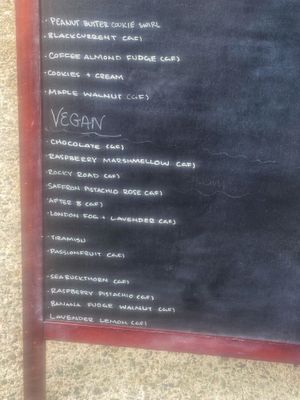 · PEANUT BUTTER COOKIE SWIRL
· BLACKCURRENT (GF)
· COFFEE ALMOND FUDGE (GF)
· COOKIES + CREAM
· MAPLE WALNUT (GF)
VEGAN
· CHOCOLATE (GF)
· RASPBERRY MARSHMELLOW (GF)
· ROCKY ROAD (GF)
· SAFFRON PISTACHIO ROSE (GF)
· AFTER 8 (GF)
· LONDON FOG + LAVENDER (GF)
· TIRAMISU
· PASSIONFRUIT (GF)
· SEABUCKTHORN (GF)
· RASPBERRY PISTACHIO (GF)
· BANANA FUDGE WALNUT (GF)
· LAVENDER LEMON (GF)